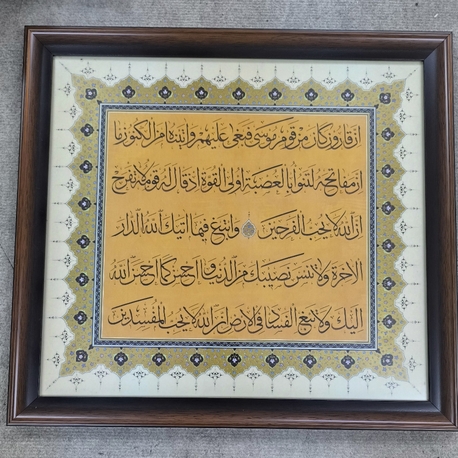 ان قارون كان من قوم موسى فبغى عليهم واتيناه من الكنوز ما
ان مفاتحه لتنوا بالعصبة اولى القوة اذ قال له قومه لا تفرح
ان الله لا يحب الفرحين وابتغ فيما اتيك الله الدار
الاخرة ولا تنس نصيبك من الدنيا و احسن كما احسن الله
اليك ولا تبغ الفساد فى الارض ان الله لا يحب المفسدين